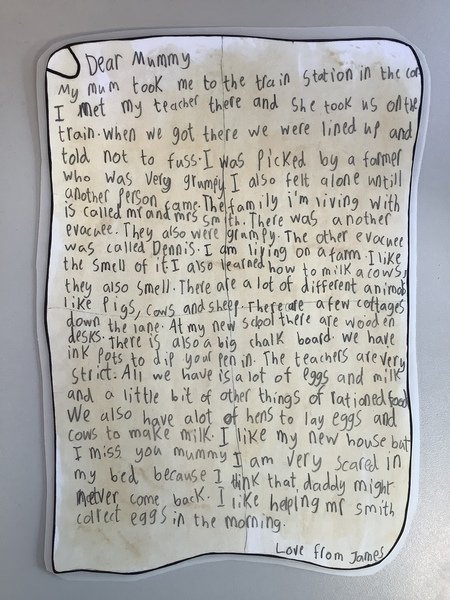 Dear Mummy
My mum took me to the train station in the car
I met my teacher there and she took us on the
train. when we got there we were lined up and
told not to fuss. I was picked by a farmer
who was very grumpy I also felt alone untill
another person came. The family i'm living with
is called mr and mrs smith. There was another
evacuee. They also were grumpy. The other evacuee
was called Dennis. I am living on a farm. I like
the smell of it I also learned how to milk a cows,
they also smell. There are a lot of different animals
like Pigs, cows and sheep. There are a few cottages
down the lane. At my new scool there are wooden
desks. There is also a big chalk board. we have
ink pots to dip your pen in. The teachers are very
strict. All we have is a lot of eggs and milk
and a little bit of other things of rationed food
We also have alot of hens to lay eggs and
cows to make milk. I like my new house but
I miss you mummy I am very scared in
my bed because I think that, daddy might
never come back. I like helping mr smith
collect eggs in the morning.
Love from James